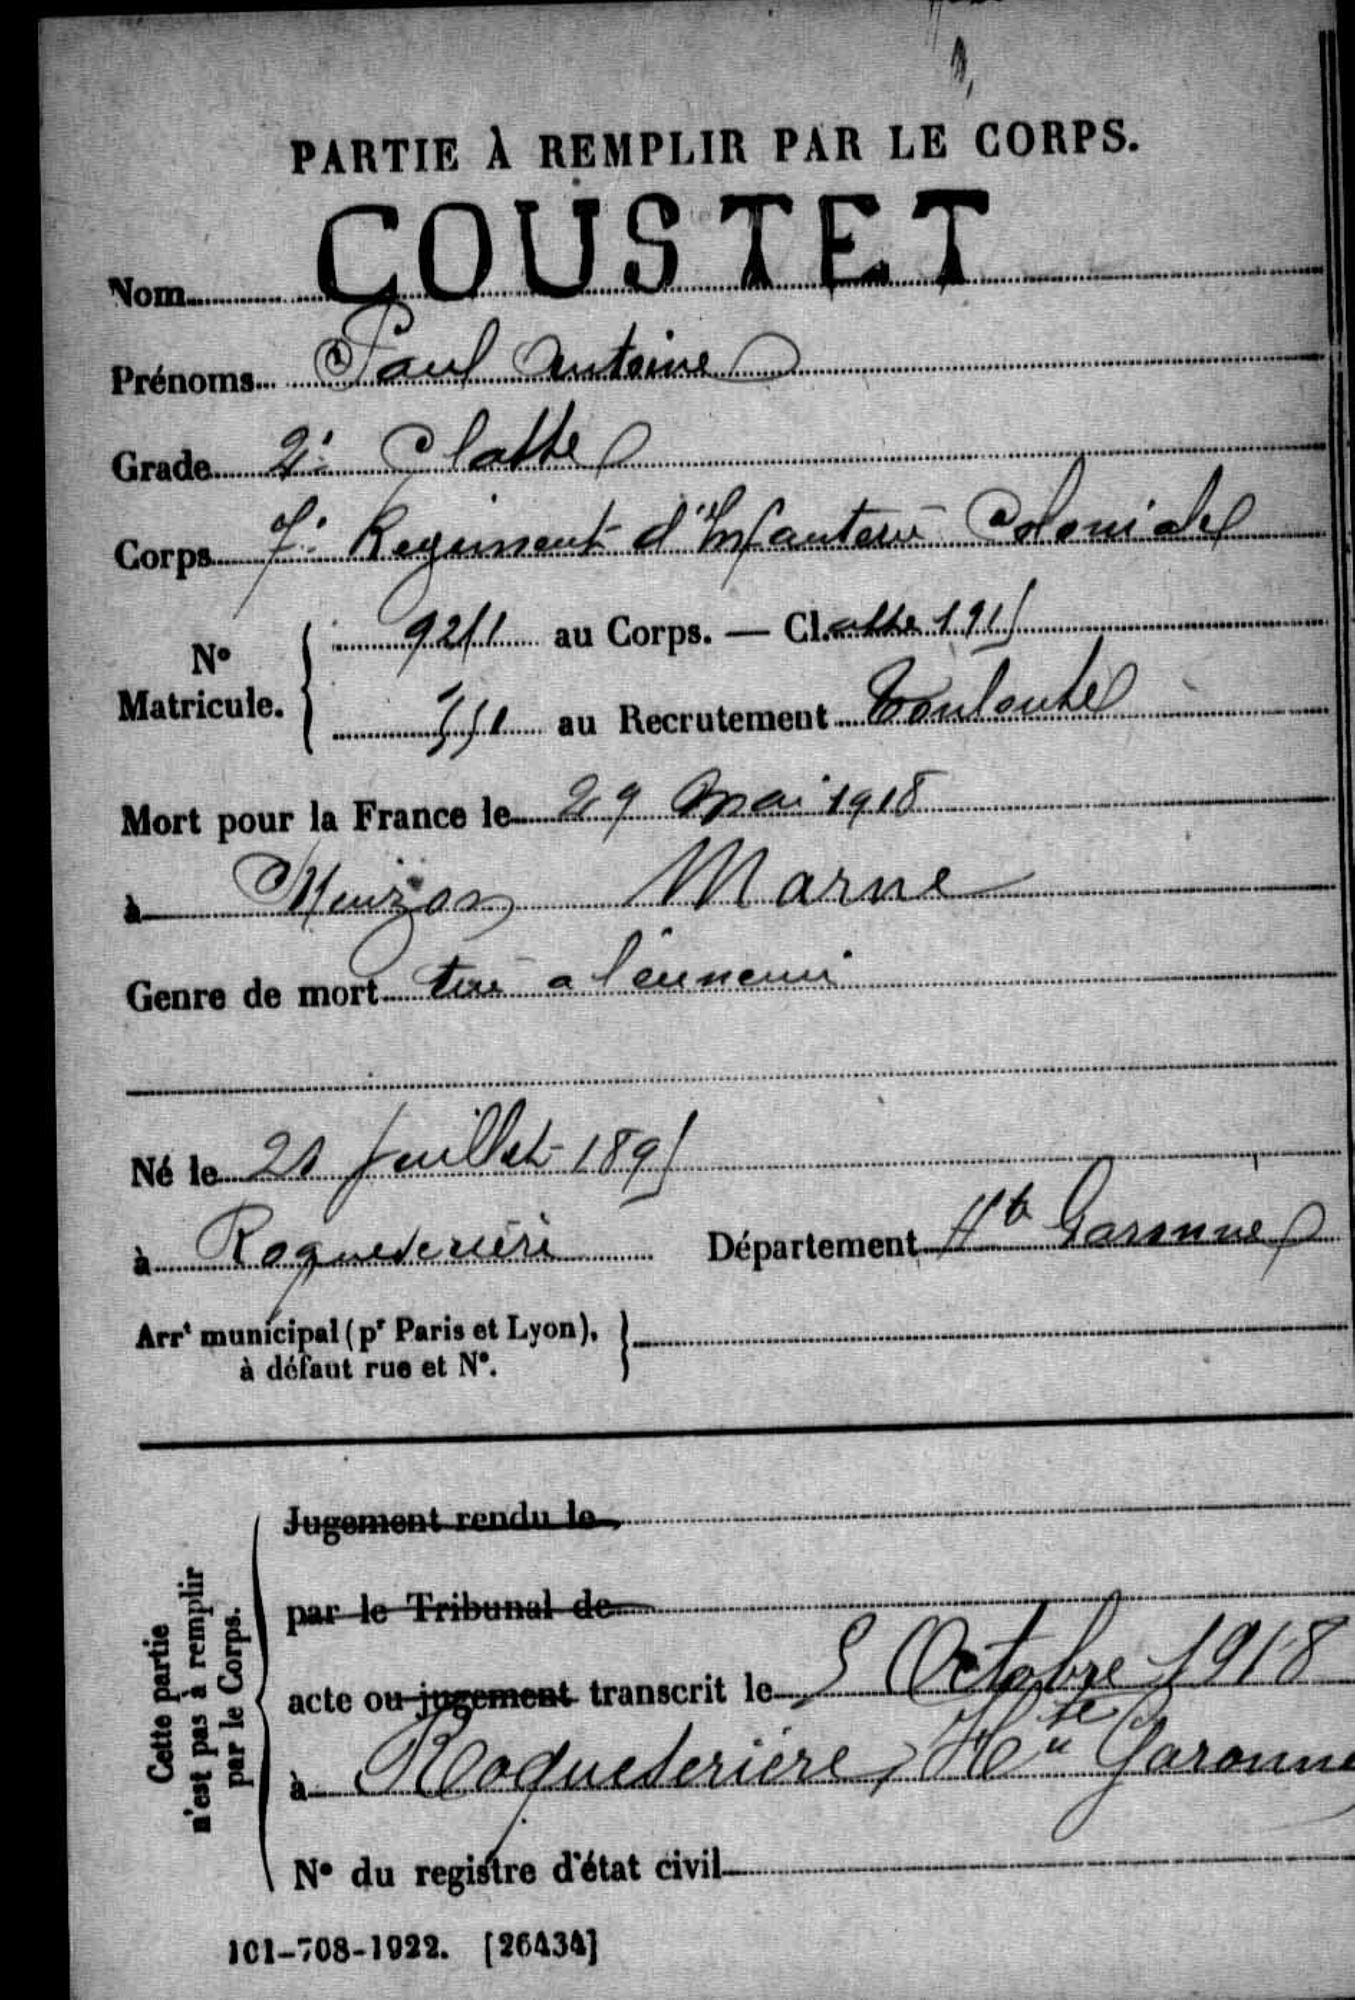 PARTIE À REMPLIR PAR LE CORPS.
Nom COUSTET
Prénoms Paul Antoine
Grade 2e Classe
Corps 7e Régiment d'Infanterie Coloniale
N° Matricule. { 9251 au Corps. — Cl.asse 1915
551 au Recrutement Toulouse
Mort pour la France le 29 Mai 1918
à Muizon Marne
Genre de mort tué a l'ennemi
Né le 21 Juillet 1895
à Roqueserière Département Hte Garonne
Arrt municipal (pr Paris et Lyon), }
à défaut rue et N°.
Cette partie n'est pas à remplir par le Corps.
Jugement rendu le
par le Tribunal de
acte ou jugement transcrit le 5 Octobre 1918
à Roqueserière, Hte Garonne
N° du registre d'état civil
101-708-1922. [26434]